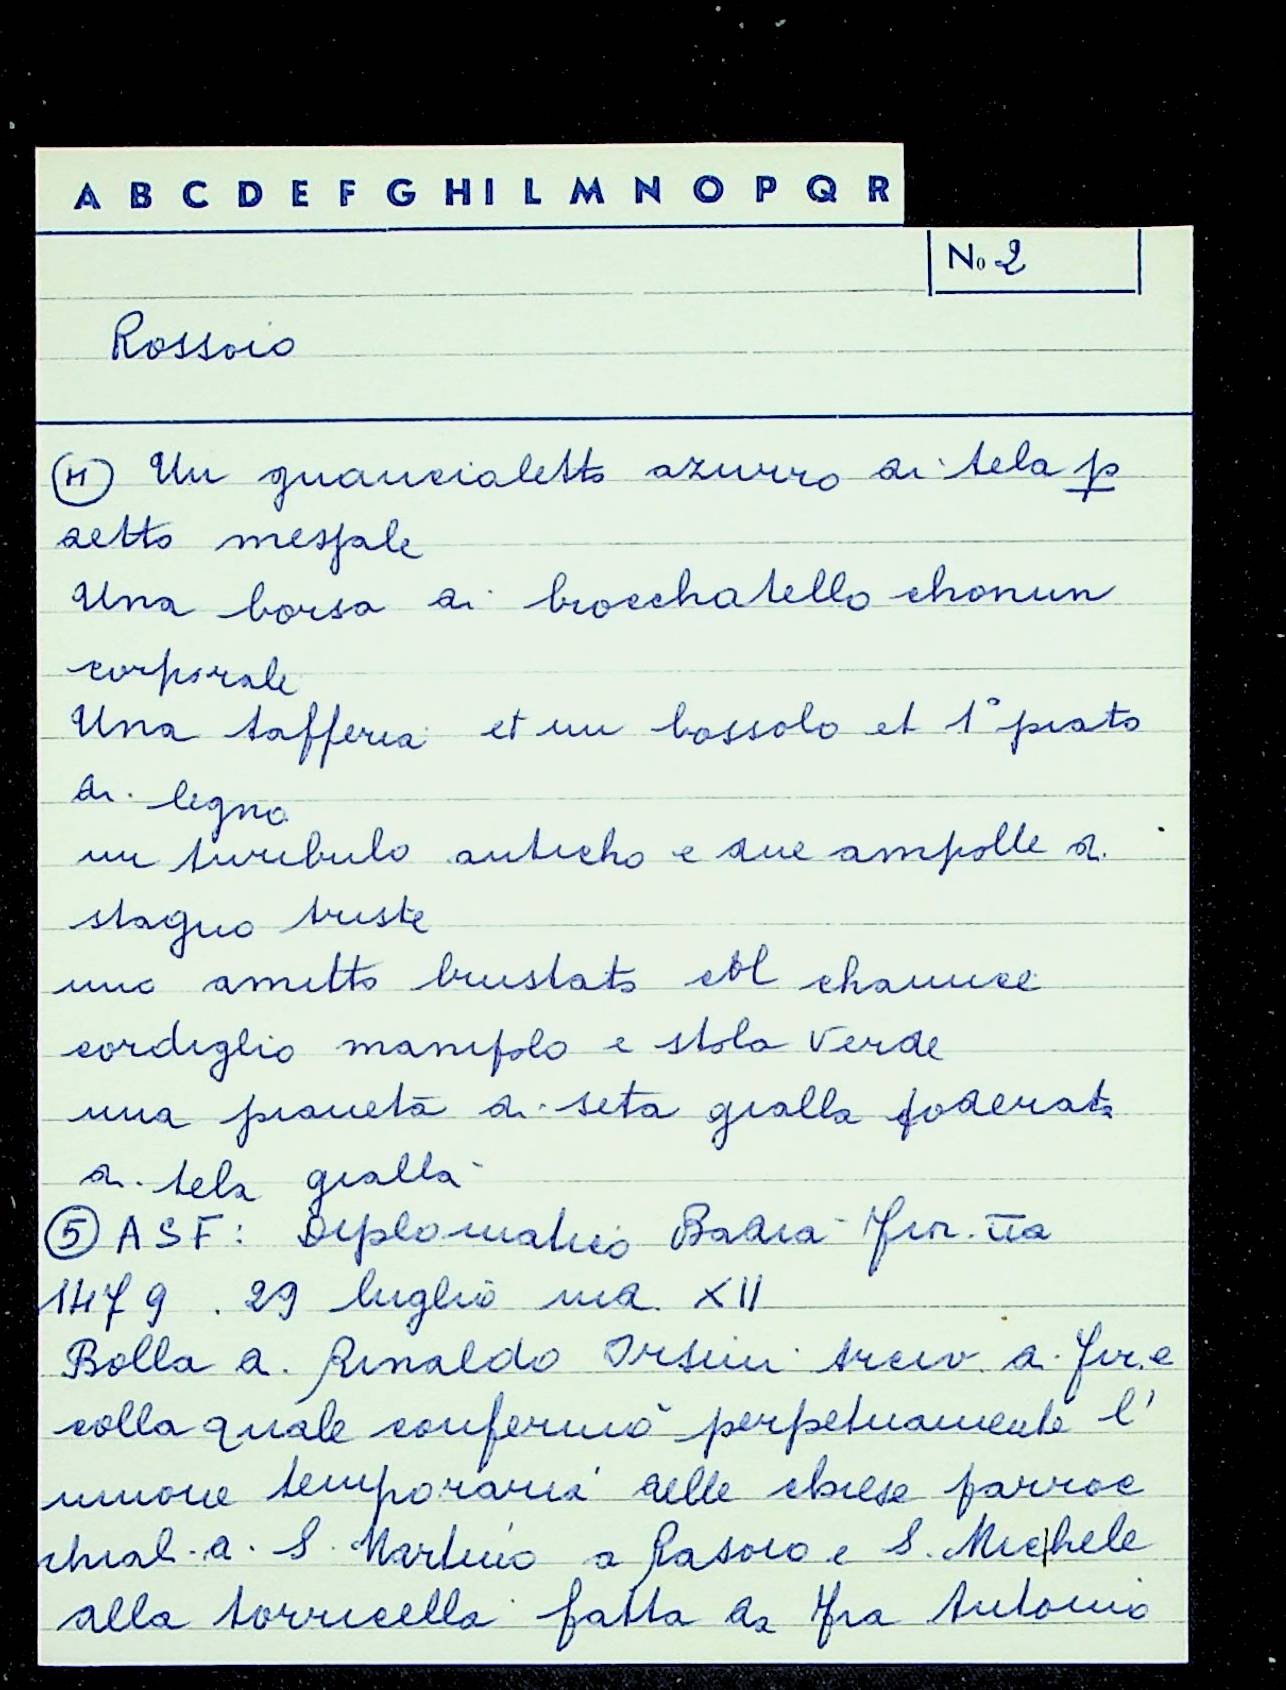 A B C D E F G H I L M N O P Q R
No 2
Rossoio
(4) Un guancialetto azurro di tela p
detto mesſale
Una borsa di brocchatello chonun
corporale
Una tafferia et un bossolo et 1° piato
di legno
un turibulo anticho e due ampolle di
stagno triste
uno amitto brustato chamice
cordiglio manipolo e stola verde
una pianeta di seta gialla foderata
di tela gialla
(5) ASF: Diplomatico Badia Fior.na
1479. 29 luglio ind. XII
Bolla di Rinaldo Orsini Arciv. di Fir.e
colla quale confermò perpetuamente l'
unione temporaria delle chiese parroc
chiali di S. Martino a Rasoio e S. Michele
alla torricella fatta da Fra Antonio